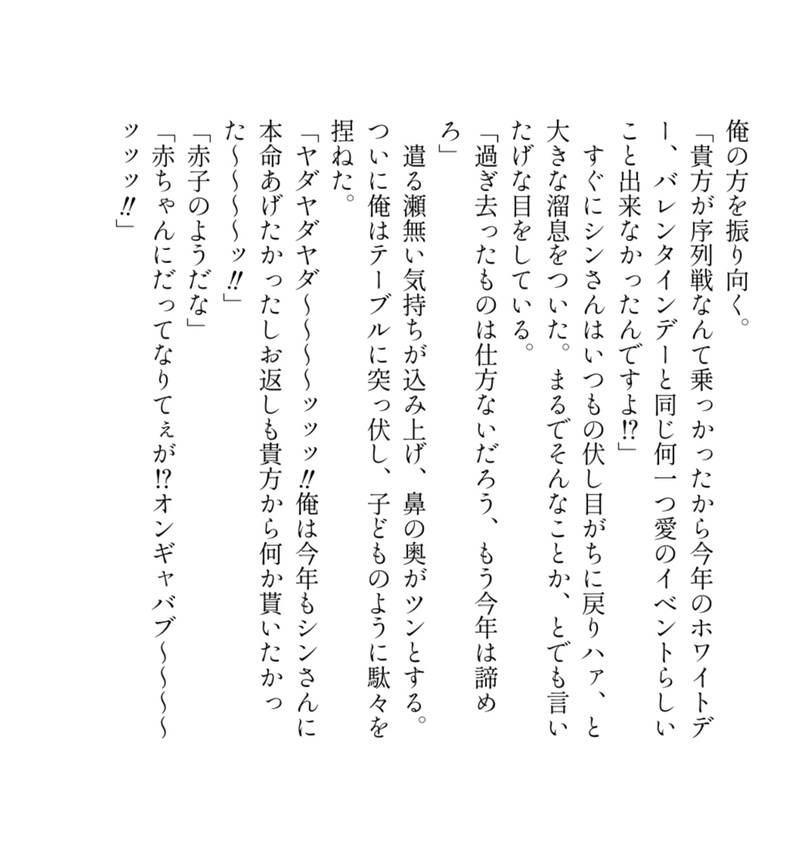 俺の方を振り向く。
「貴方が序列戦なんて乗っかったから今年のホワイトデ
ー、バレンタインデーと同じ何一つ愛のイベントらしい
こと出来なかったんですよ⁉」
　すぐにシンさんはいつもの伏し目がちに戻りハァ、と
大きな溜息をついた。まるでそんなことか、とでも言い
たげな目をしている。
「過ぎ去ったものは仕方ないだろう、もう今年は諦め
ろ」
　遣る瀬無い気持ちが込み上げ、鼻の奥がツンとする。
ついに俺はテーブルに突っ伏し、子どものように駄々を
捏ねた。
「ヤダヤダヤダ〜〜〜〜ッッッ‼俺は今年もシンさんに
本命あげたかったしお返しも貴方から何か貰いたかっ
た〜〜〜〜ッ‼」
「赤子のようだな」
「赤ちゃんにだってなりてぇが⁉オンギャバブ〜〜〜〜
ッッッ‼」